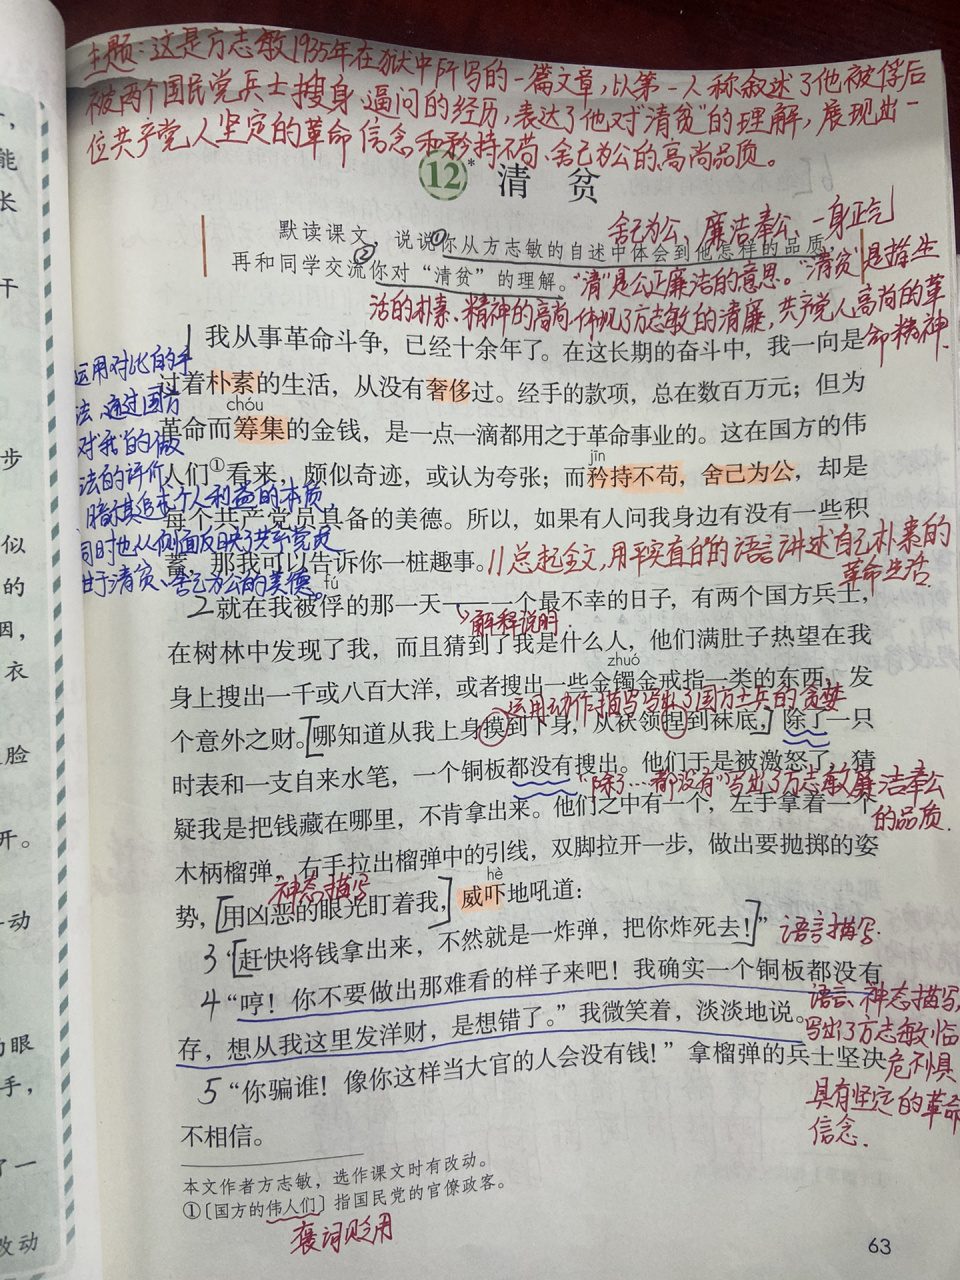 主题:这是方志敏1935年在狱中所写的一篇文章,以第一人称叙述了他被俘后
被两个国民党兵士搜身、逼问的经历,表达了他对"清贫"的理解,展现出一
位共产党人坚定的革命信念和矜持不苟、舍己为公的高尚品质。
12* 清 贫
舍己为公、廉洁奉公、一身正气
默读课文,说说①你从方志敏的自述中体会到他怎样的品质,
再和同学交流②你对“清贫”的理解。
"清"是公正廉洁的意思。"清贫"是指生
活的朴素、精神的高尚,体现了方志敏的清廉,共产党人高尚的革
命精神.
1 我从事革命斗争,已经十余年了。在这长期的奋斗中,我一向是
过着朴素的生活,从没有奢侈过。经手的款项,总在数百万元;但为
chóu
革命而筹集的金钱,是一点一滴都用之于革命事业的。这在国方的伟
jīn
人们①看来,颇似奇迹,或认为夸张;而矜持不苟,舍己为公,却是
每个共产党员具备的美德。所以,如果有人问我身边有没有一些积
蓄,那我可以告诉你一桩趣事。
运用对比的手
法,通过国方
对"我"的做
法的评价
暗讽其追求个人利益的本质
同时也从侧面反映了共产党员
甘于清贫、舍己为公的美德。
//总起全文,用平实直白的语言讲述自己朴素的
革命生活
fú
2 就在我被俘的那一天——一个最不幸的日子,有两个国方兵士,
解释说明.
在树林中发现了我,而且猜到了我是什么人,他们满肚子热望在我
zhuó
身上搜出一千或八百大洋,或者搜出一些金镯金戒指一类的东西,发
运用动作描写写出了国方士兵的贪婪
个意外之财。[哪知道从我上身摸到下身,从袄领捏到袜底,]除了一只
时表和一支自来水笔,一个铜板都没有搜出。他们于是被激怒了,猜
"除了……都没有"写出了方志敏廉洁奉公
的品质.
疑我是把钱藏在哪里,不肯拿出来。他们之中有一个,左手拿着一个
木柄榴弹,右手拉出榴弹中的引线,双脚拉开一步,做出要抛掷的姿
神态描写
hè
势,[用凶恶的眼光盯着我,]威吓地吼道:
3 “[赶快将钱拿出来,不然就是一炸弹,把你炸死去!]”
语言描写.
4 “哼!你不要做出那难看的样子来吧!我确实一个铜板都没有
存,想从我这里发洋财,是想错了。”我微笑着,淡淡地说。
语言、神态描写,
写出了方志敏临
危不惧
具有坚定的革命
信念.
5 “你骗谁!像你这样当大官的人会没有钱!”拿榴弹的兵士坚决
不相信。
本文作者方志敏,选作课文时有改动。
①〔国方的伟人们〕指国民党的官僚政客。
褒词贬用
63
能
长
干
步
似
的
因,
衣
脸
开。
动
眼
手,
了一
改动